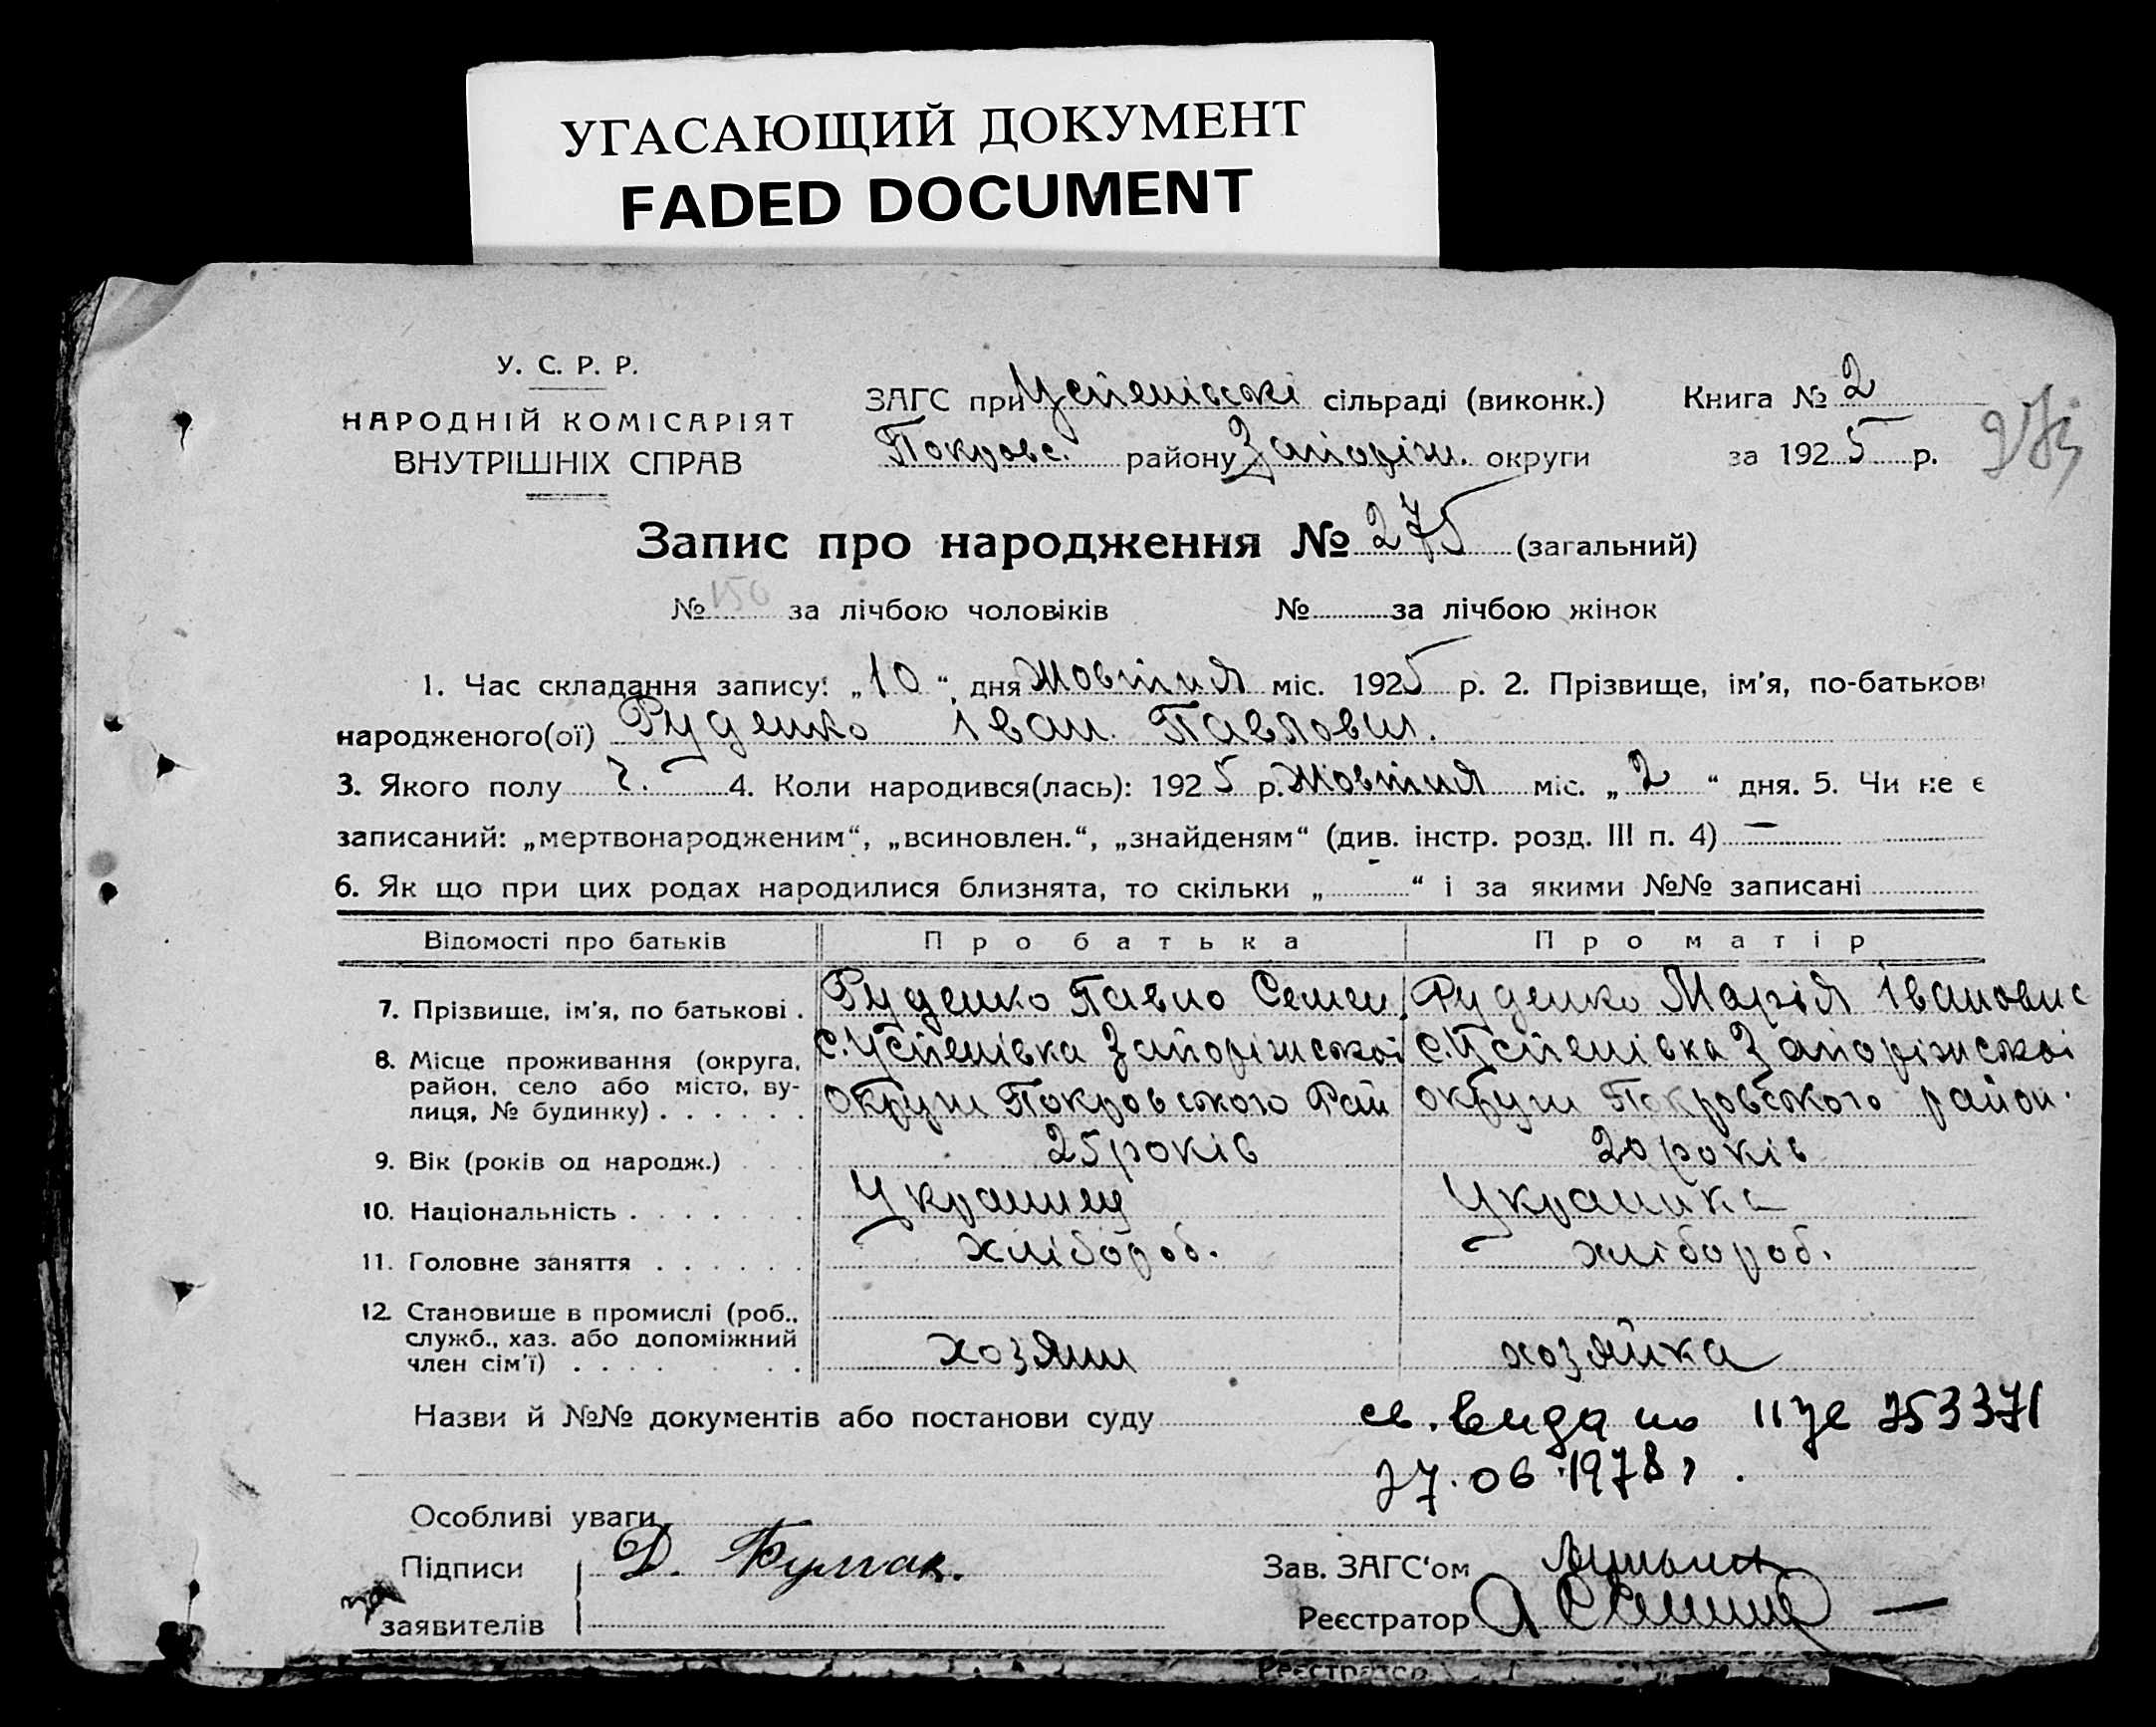 УГАСАЮЩИЙ ДОКУМЕНТ
FADED DOCUMENT
У. С. Р. Р.
НАРОДНІЙ КОМІСАРІЯТ
ВНУТРІШНІХ СПРАВ
ЗАГС при Успенівські сільраді (виконк.) Книга № 2
Покровс. району Запоріж. округи за 1925 р.
Запис про народження № 275 (загальний)
№ 150 за лічбою чоловіків № за лічбою жінок
1. Час складання запису: „10“ дня Жовтня міс. 1925 р. 2. Прізвище, ім'я, по-батькові
народженого(ої) Руденко Іван Павлович.
3. Якого полу ч. 4. Коли народився(лась): 1925 р. Жовтня міс. „2“ дня. 5. Чи не є
записаний: „мертвонародженим“, „всиновлен.“, „знайденям“ (див. інстр. розд. III п. 4) —
6. Як що при цих родах народилися близнята, то скільки „-“ і за якими №№ записані
Відомості про батьків Про батька Про матір
7. Прізвище, ім'я, по батькові. Руденко Павло Семен. Руденко Марія Івановис
8. Місце проживання (округа, район, село або місто, вулиця, № будинку) с. Успенівка Запоріжської округи Покровського Рай с. Успенівка Запоріжської округи Покровського район.
9. Вік (років од народж.) 25 років 20 років
10. Національність Украинец Украинка
11. Головне заняття хлібороб. хлібороб.
12. Становище в промислі (роб., служб., хаз. або допоміжний член сім'ї) хозяин хозяйка
Назви й №№ документів або постанови суду св. видано II УР 753371
27.06.1978 г.
Особливі уваги
Підписи Д. Зав. ЗАГС'ом
за заявителів Реєстратор
Реєстратор